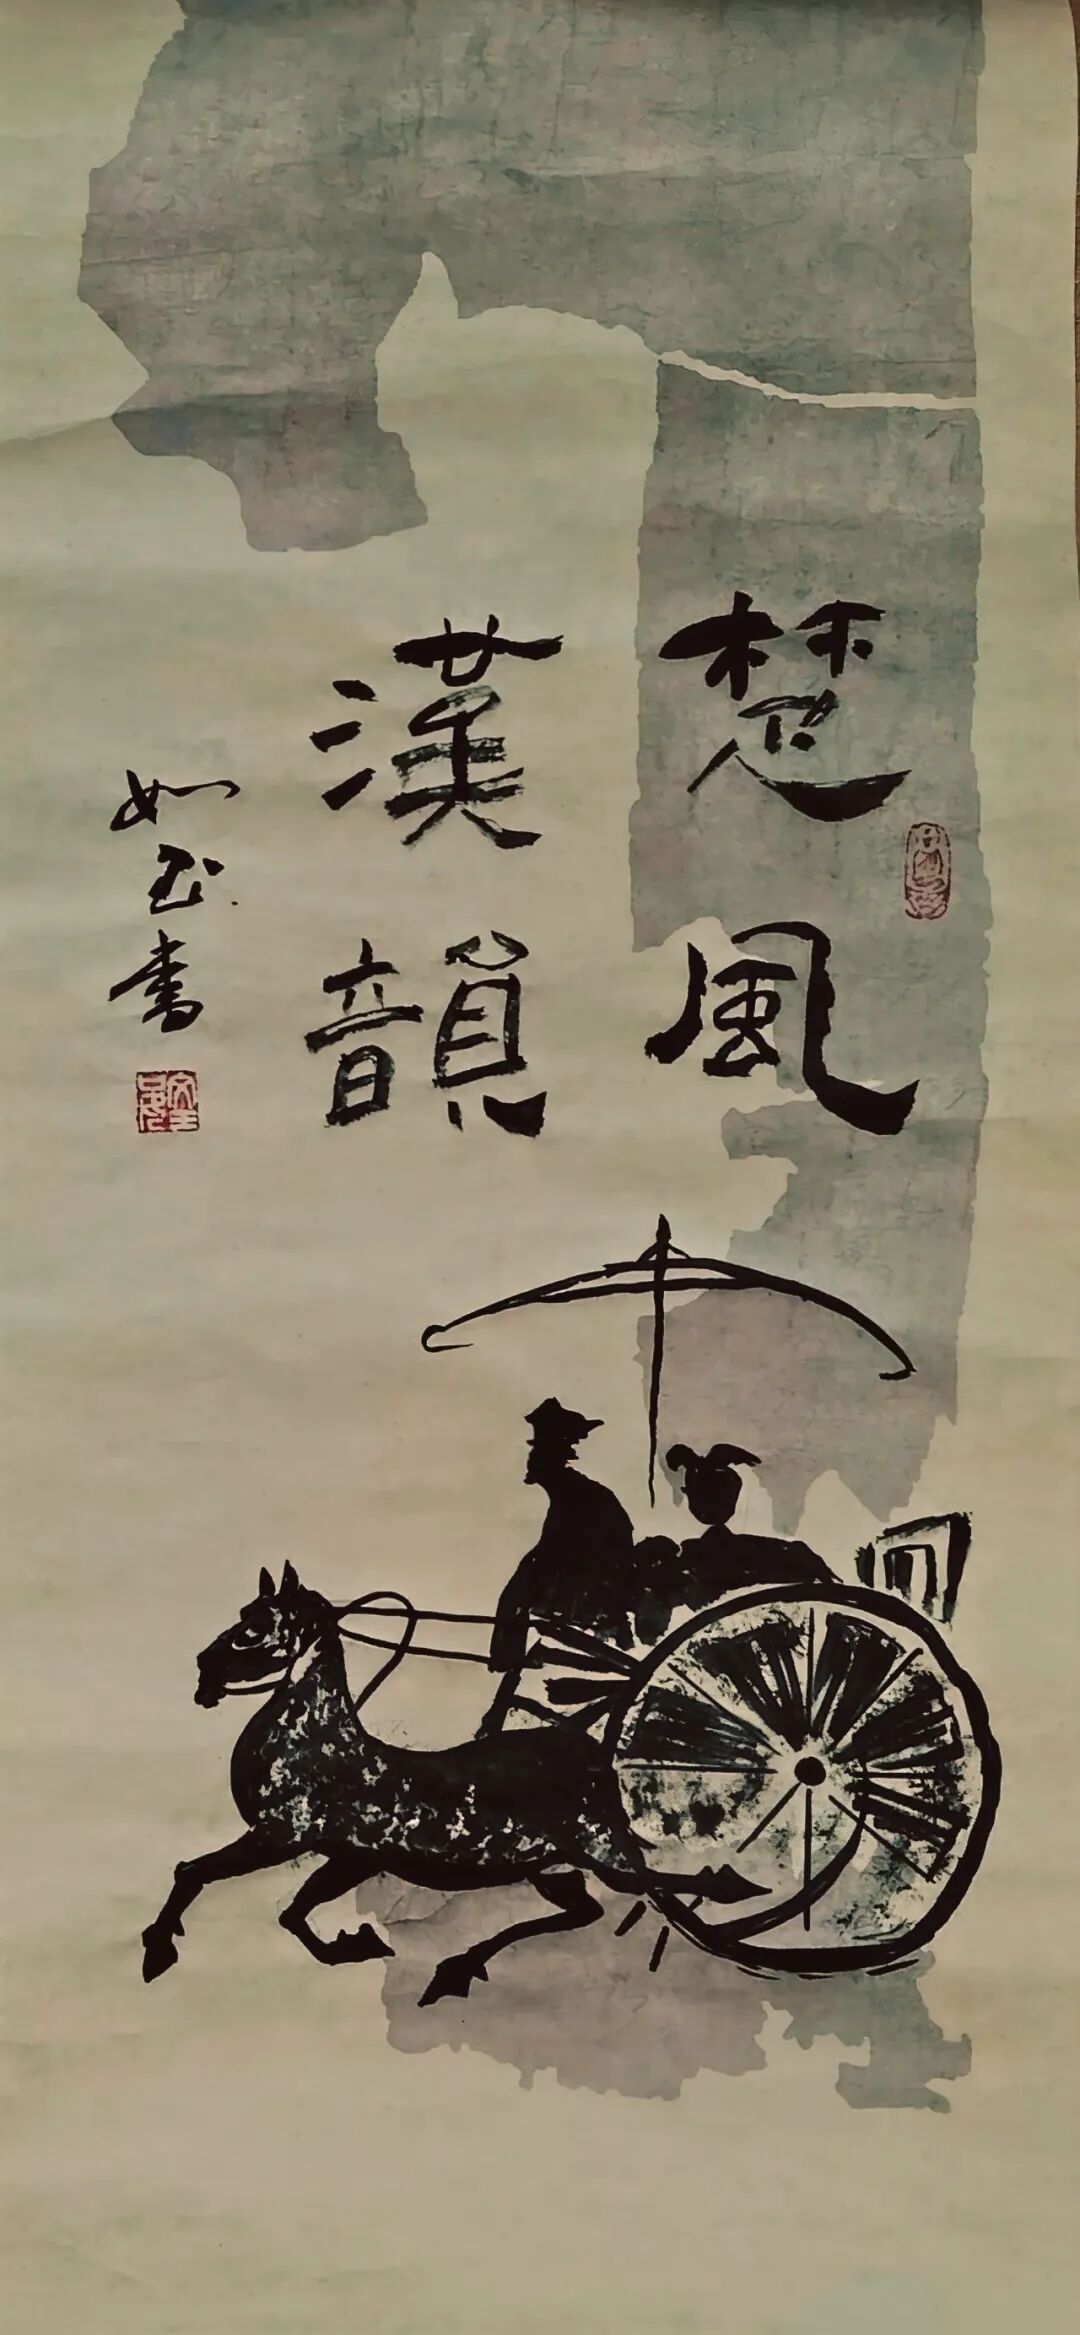 楚風
漢韻
如玉書